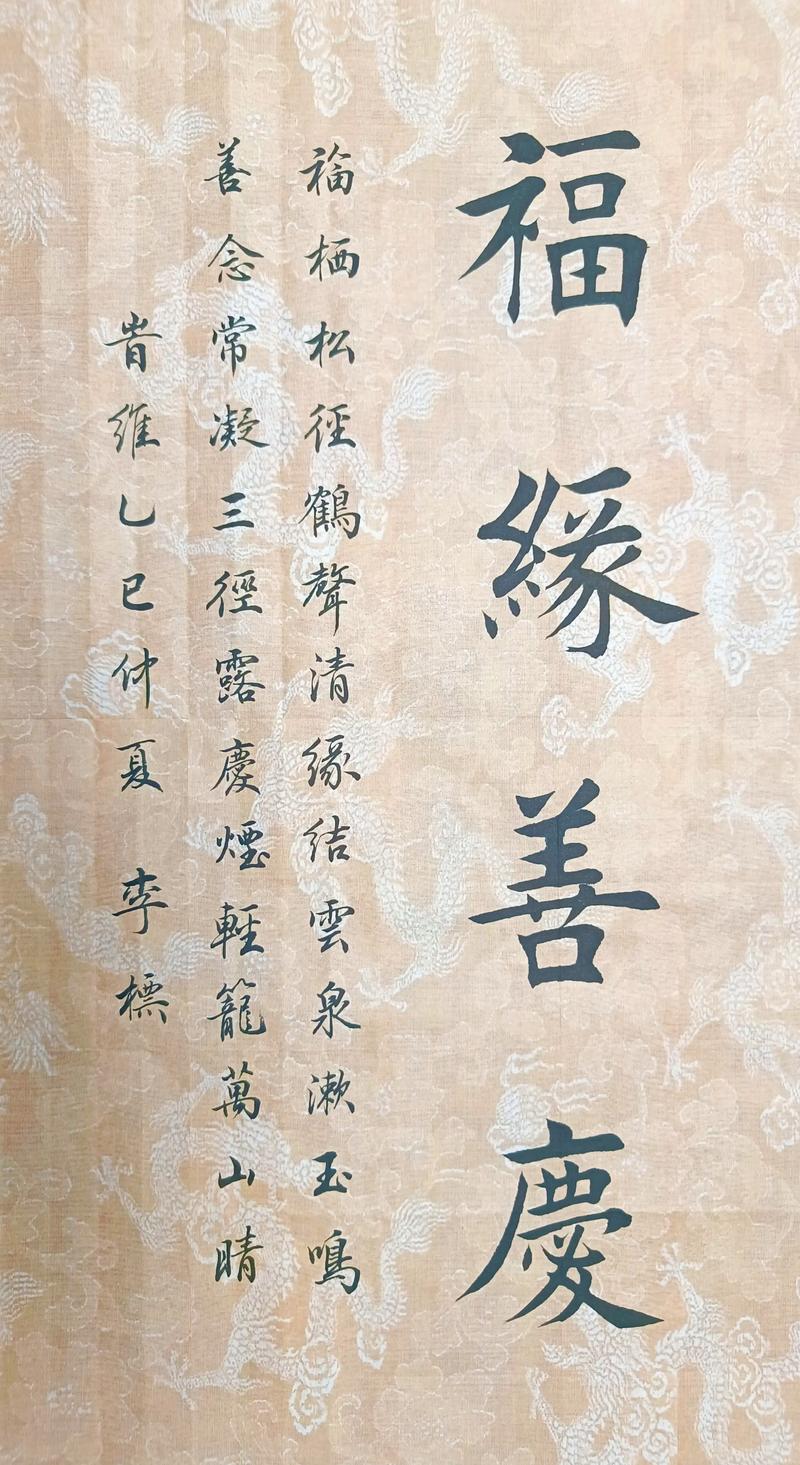 福緣善慶
福栖松徑鶴聲清緣結雲泉漱玉鳴
善念常凝三徑露慶煙輕籠萬山晴
旹維乙巳仲夏 李標